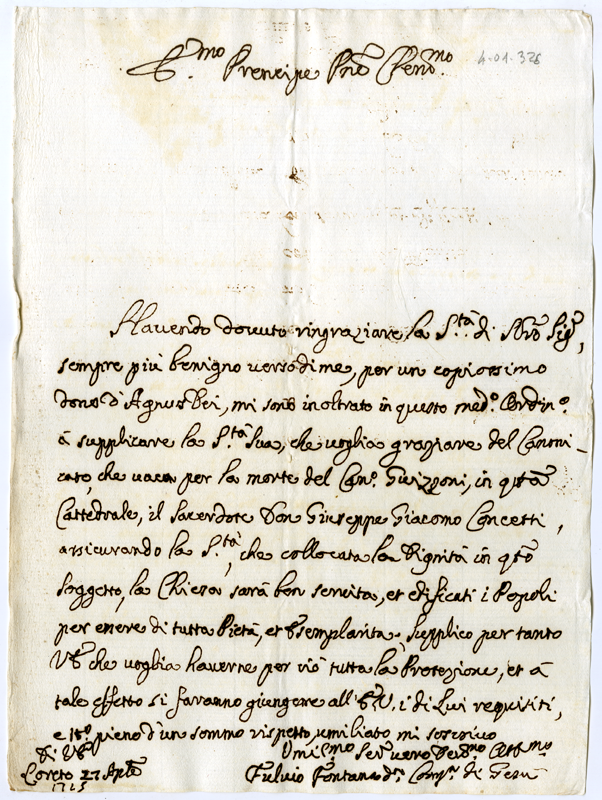 E.mo Prencipe Pne Cŕenmo.
4.01.326
Havendo dovuto ringraziare la S.tà di Nro Sigre,
sempre più benigno verso di me, per un copiosissimo
dono d'Agnus Dei, mi sono inoltrato in questo medo. Ordino.
à supplicare la S.tà Sua, che voglia graziare del Canoni-
cato, che vaca per la morte del Cano. Guizzoni, in qsta
Cattedrale, il Sacerdote Don Giuseppe Giacomo Concetti,
assicurando la S.tà, che collocata la Dignità in qsto
soggetto, la Chiesa sarà ben servita, et edificati i Popoli
per essere di tutta Pietà, et Esemplarità, supplico per tanto
VE che voglia haverne per ciò tutta la Protezione, et à
tale effetto si faranno giungere all'E.V. i di Lui requisiti,
e pieno d'un sommo rispetto, umiliato mi soscrivo
Di VE
Umilmo Ser vero Devmo Obbmo
Loreto 27 Aple
Fulvio Fontana da. Compa. di Gesù
1715